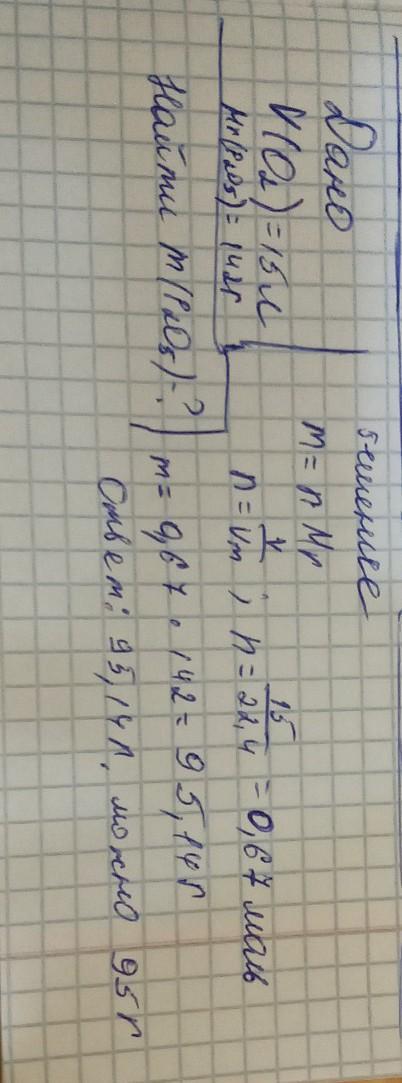 Дано
V(O₂) = 15 л
Mr(P₂O₅) = 142г
Найти m(P₂O₅) - ?
решение
m = n Mr
n = V/Vm ; n = 15/22,4 = 0,67 моль
m = 0,67 · 142 = 95,14 г
Ответ: 95,14 г, можно 95 г